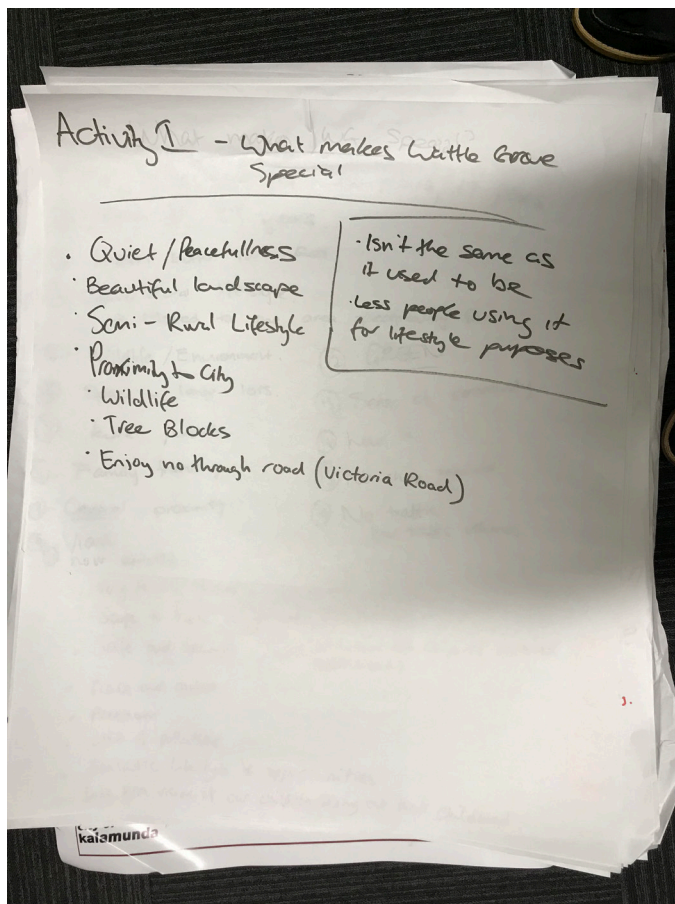 Activity 1 - What makes Wattle Grove
Special
· Quiet / Peacefullness
· Beautiful landscape
· Semi - Rural Lifestyle
· Proximity to City
· Wildlife
· Tree Blocks
· Enjoy no through road (Victoria Road)
· Isn't the same as
it used to be
· Less people using it
for lifestyle purposes
1.
kalamunda